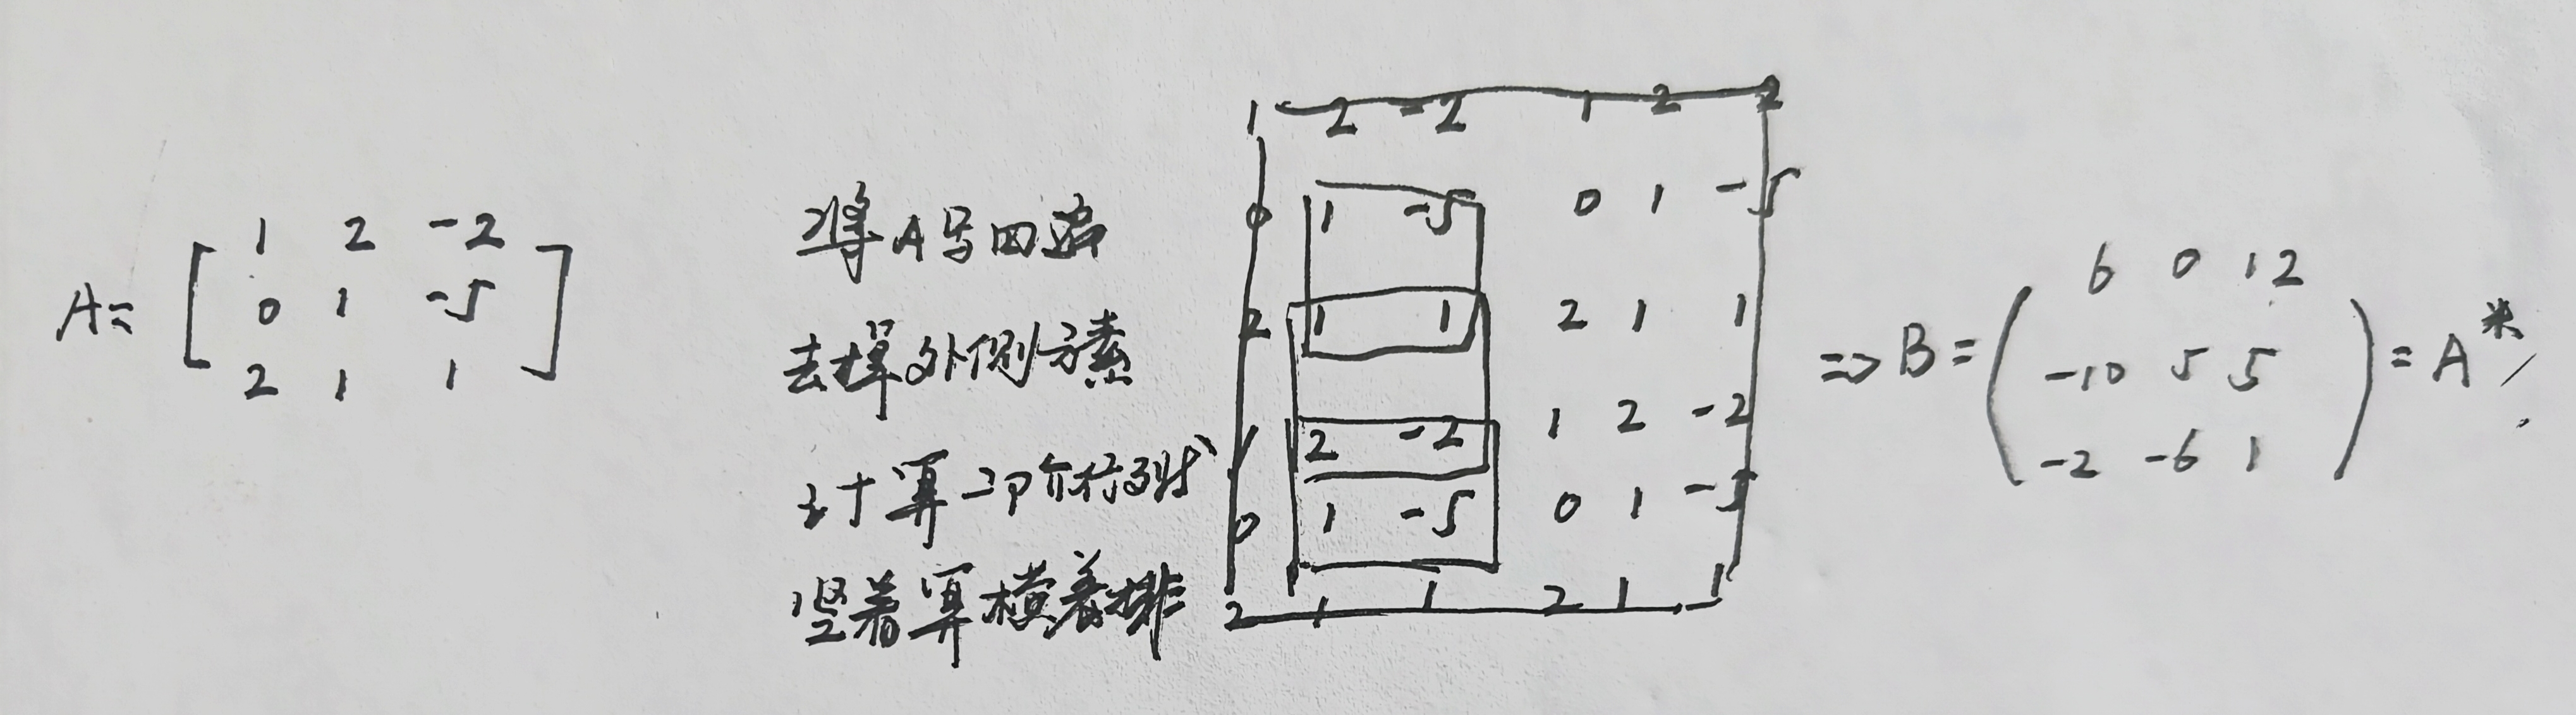 A= [ 1 2 -2
0 1 -5
2 1 1 ]
将A写四遍
去掉外侧元素
计算二阶行列式
竖着算横着排
1 2 -2 1 2 2
0 1 -5 0 1 -5
2 1 1 2 1 1
1 2 -2 1 2 -2
0 1 -5 0 1 -5
2 1 1 2 1 1
=> B = ( 6 0 12
-10 5 5
-2 -6 1 ) = A*